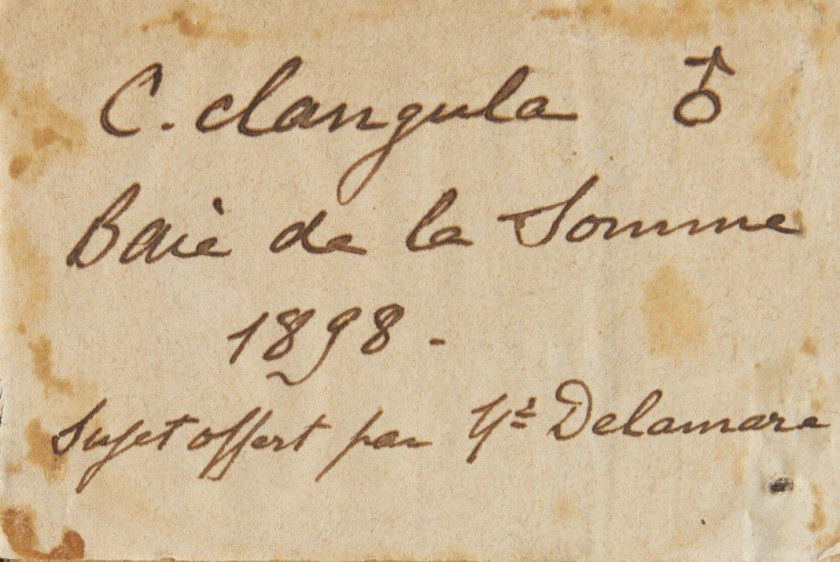 C. clangula ♂
Baie de la Somme
1898 -
Sujet offert par Delamare